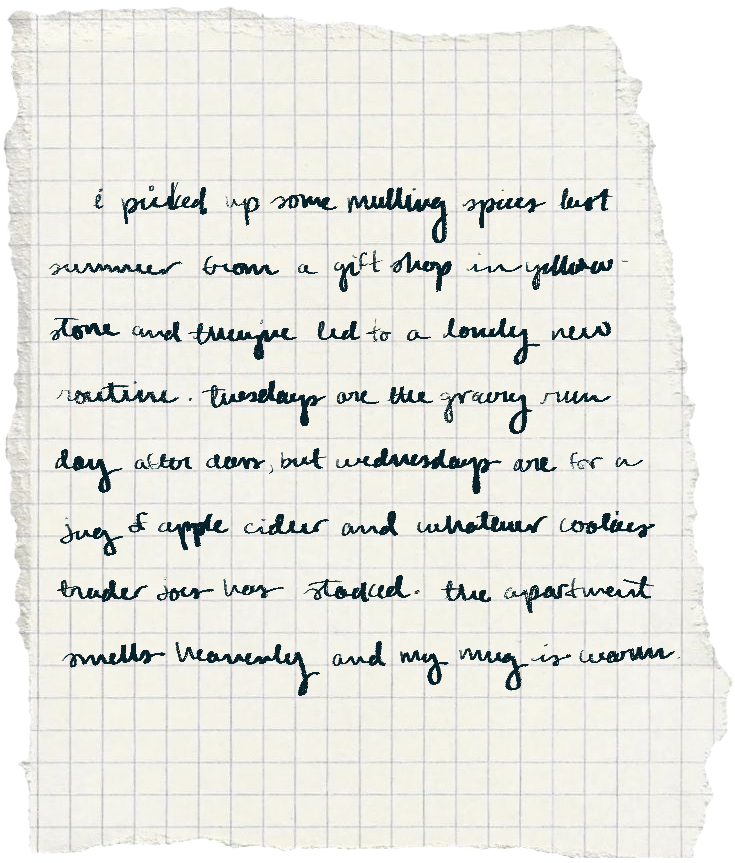 i picked up some mulling spices last
summer from a gift shop in yellow-
stone and they've led to a lovely new
routine. tuesdays are the grocery run
day after class, but wednesdays are for a
jug of apple cider and whatever cookies
trader joes has stocked. the apartment
smells heavenly and my mug is warm.